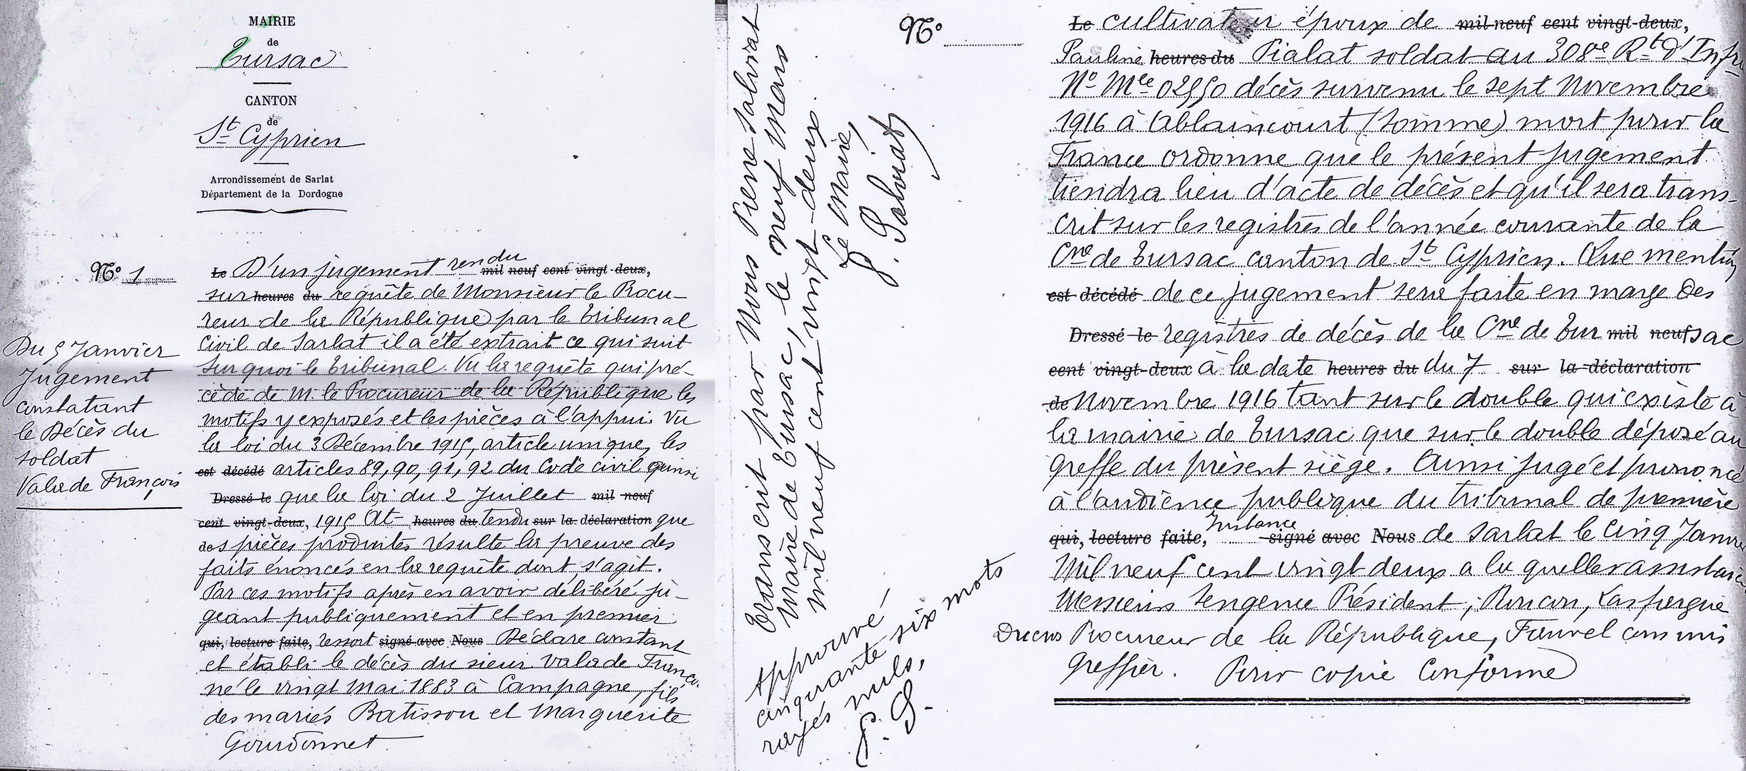 MAIRIE
de
Tursac
CANTON
de
St Cyprien
Arrondissement de Sarlat
Département de la Dordogne
No 1
Du 5 Janvier
Jugement
constatant
le Décès du
soldat
Valade François
Le D'un jugement rendu mil neuf cent vingt-deux,
sur heures du requête de Monsieur le Procu-
reur de la République par le Tribunal
Civil de Sarlat il a été extrait ce qui suit
Sur quoi le Tribunal. Vu la requête qui pré-
cède de M. le Procureur de la République les
motifs y exposés et les pièces à l'appui. Vu
la loi du 3 Décembre 1915, article unique, les
est décédé articles 89, 90, 91, 92 du Code civil ainsi
Dressé le que la loi du 2 Juillet mil neuf
cent vingt-deux, 1915 At- heures du tendu sur la déclaration que
des pièces produites résulte la preuve des
faits énoncés en la requête dont s'agit.
Par ces motifs après en avoir délibéré ju-
geant publiquement et en premier
qui, lecture faite, ressort signé avec Nous Déclare constant
et établi le décès du sieur Valade François
né le vingt Mai 1883 à Campagne, fils
des mariés Batissou et Marguerite
Gourdonnet.
Transcrit par Nous Pierre Salviat
Maire de Tursac, le neuf Mars
mil neuf cent vingt-deux.
Le Maire,
P. Salviat
Approuvé
cinquante six mots
rayés nuls,
P. S.
No
Le cultivateur époux de mil neuf cent vingt-deux,
Pauline heures du Pialat soldat au 308e Rt d'Infrie
No Mle 02950 décès survenu le sept Novembre
1916 à Ablaincourt (Somme) mort pour la
France ordonne que le présent jugement
tiendra lieu d'acte de décès et qu'il sera trans-
crit sur les registres de l'année courante de la
Cne de Tursac canton de St Cyprien. Que mention
est décédé de ce jugement sera faite en marge des
Dressé le registres de décès de la Cne de Tur mil neuf sac
cent vingt-deux à la date heures du du 7 sur la déclaration
de Novembre 1916 tant sur le double qui existe à
la mairie de Tursac que sur le double déposé au
greffe du présent siège. Ainsi jugé et prononcé
à l'audience publique du tribunal de première
qui, lecture faite, Instance signé avec Nous de Sarlat le Cinq Janvier
Mil neuf cent vingt deux a la quelle assistaient
Messieurs Tengence Président, Roncon, Laspergue
Ducros Procureur de la République, Fauvel commis
Greffier. Pour copie Conforme